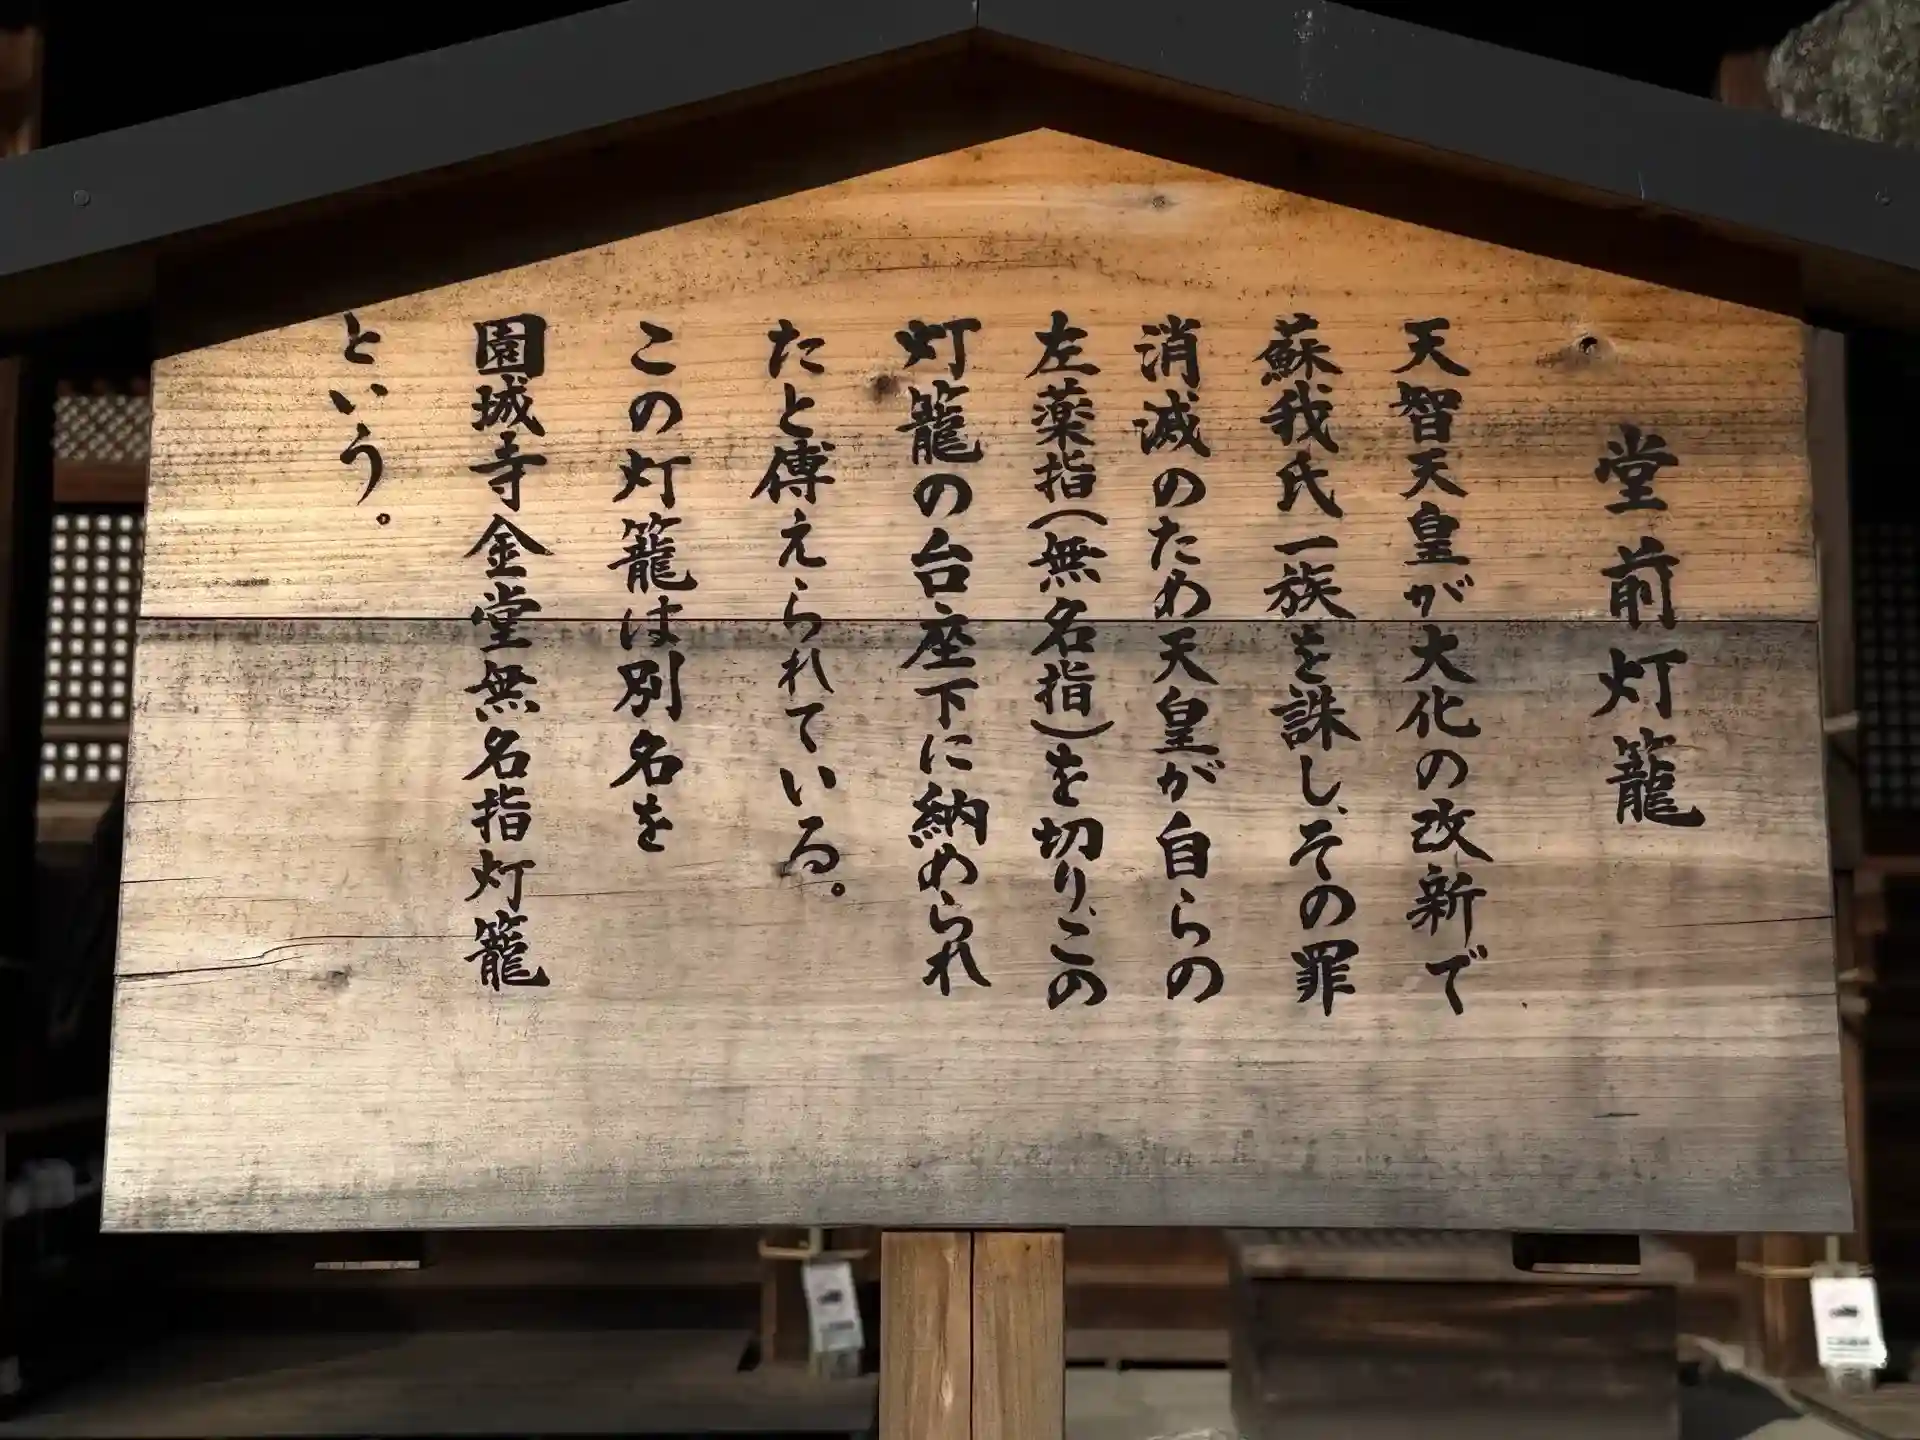 堂前灯籠
天智天皇が大化の改新で
蘇我氏一族を誅し、その罪
消滅のため天皇が自らの
左薬指(無名指)を切り、この
灯籠の台座下に納められ
たと傳えられている。
この灯籠は別名を
園城寺金堂無名指灯籠
という。